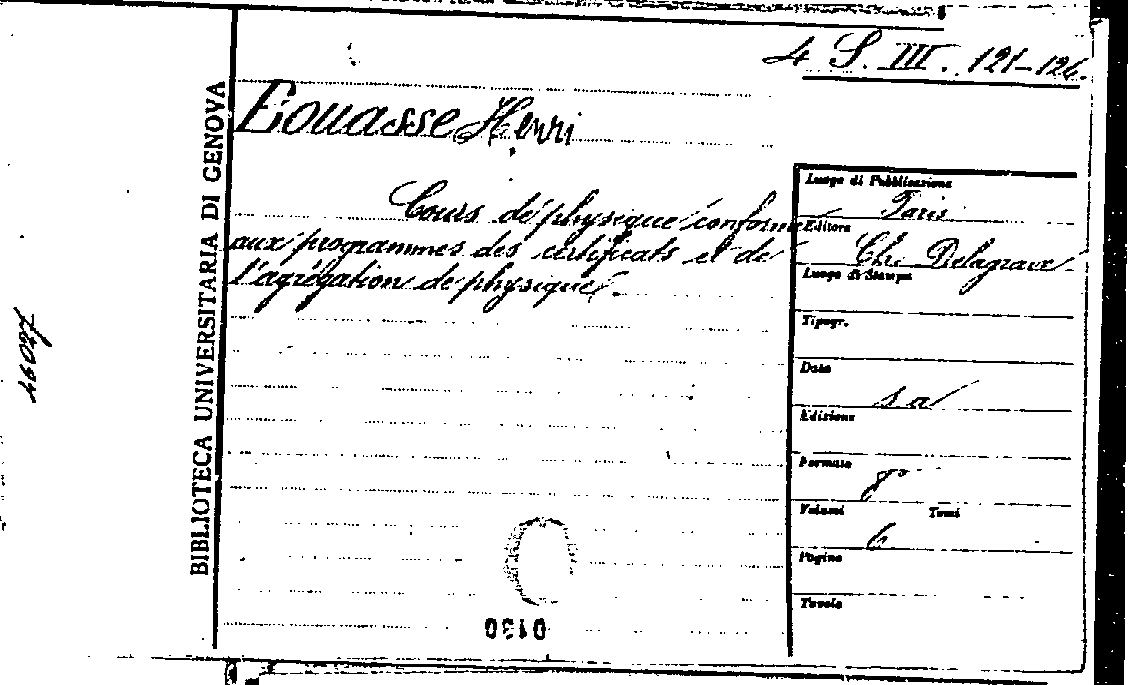 4 S. III. 121-126.
Bouasse Henri
Cours de physique conforme
aux programmes des certificats et de
l'agrégation de physique.
BIBLIOTECA UNIVERSITARIA DI GENOVA
Luogo di Pubblicazione
Paris
Editore
Ch. Delagrave
Luogo di Stampa
Tipogr.
Data
s a
Edizione
Formato
8°
Volumi Tomi
6
Pagine
Tavole
0130